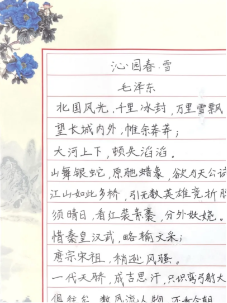 沁园春·雪
毛泽东
北国风光，千里冰封，万里雪飘
望长城内外，惟余莽莽；
大河上下，顿失滔滔。
山舞银蛇，原驰蜡象，欲与天公试
江山如此多娇，引无数英雄竞折腰
须晴日，看红装素裹，分外妖娆。
惜秦皇汉武，略输文采；
唐宗宋祖，稍逊风骚。
一代天骄，成吉思汗，只识弯弓射大
俱往矣，数风流人物，还看今朝